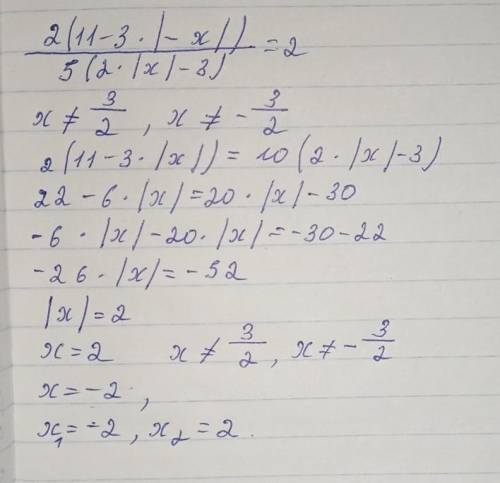 2(11-3·|-x|) / 5(2·|x|-3) = 2
x ≠ 3/2, x ≠ -3/2
2(11-3·|x|) = 10(2·|x|-3)
22-6·|x|=20·|x|-30
-6·|x|-20·|x|=-30-22
-26·|x|=-52
|x|=2
x=2 x ≠ 3/2, x ≠ -3/2
x=-2,
x₁=-2, x₂=2.